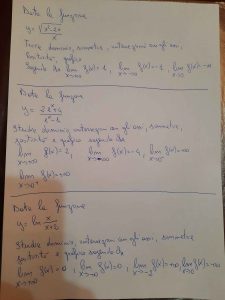 Data la funzione
y = √(x²-2x)/x
Trova dominio, simmetrie, intersezioni con gli assi,
positività, grafico
sapendo che lim x→+∞ f(x)=1, lim x→-∞ f(x)=-1, lim x→0⁻ f(x)=-∞
Data la funzione
y =
Studia dominio, intersezioni con gli assi, simmetrie,
positività e grafico sapendo che
lim x→+∞ f(x)=2, lim x→-∞ f(x)=-4, lim x→0⁻ f(x)=+∞
lim x→0⁺ f(x)=+∞
Data la funzione
y = ln x/(x+2)
Studia dominio, intersezioni con gli assi, simmetrie
positività e grafico sapendo che
lim x→+∞ f(x)=0, lim x→-∞ f(x)=0, lim x→-2⁻ f(x)=+∞, lim f(x)=-∞